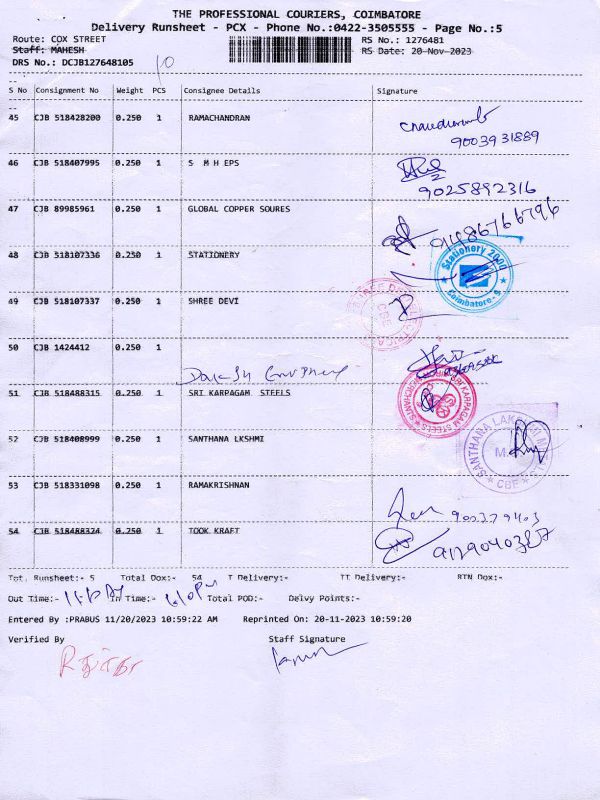 THE PROFESSIONAL COURIERS, COIMBATORE
Delivery Runsheet - PCX - Phone No.:0422-3505555 - Page No.:5
Route: COX STREET RS No.: 1276481
Staff: MAHESH RS Date: 20-Nov-2023
DRS No.: DCJB127648105 10
S No Consignment No Weight PCS Consignee Details Signature
45 CJB 518428200 0.250 1 RAMACHANDRAN
9003931889
46 CJB 518407995 0.250 1 S M H EPS
9025892316
47 CJB 89985961 0.250 1 GLOBAL COPPER SOURES
9486766796
48 CJB 518107336 0.250 1 STATIONERY
Stationery 2000
Coimbatore - 9
49 CJB 518107337 0.250 1 SHREE DEVI
CBE
50 CJB 1424412 0.250 1
51 CJB 518488315 0.250 1 SRI KARPAGAM STEELS
SRI KARPAGAM STEELS
52 CJB 518408999 0.250 1 SANTHANA LKSHMI
SANTHANA LAKSHMI
CBE
53 CJB 518331098 0.250 1 RAMAKRISHNAN
54 CJB 518488324 0.250 1 TOOK KRAFT
Tot. Runsheet:- 5 Total Dox:- 54 T Delivery:- TT Delivery:- RTN Dox:-
Out Time:- In Time:- Total POD:- Delvy Points:-
Entered By :PRABUS 11/20/2023 10:59:22 AM Reprinted On: 20-11-2023 10:59:20
Verified By Staff Signature